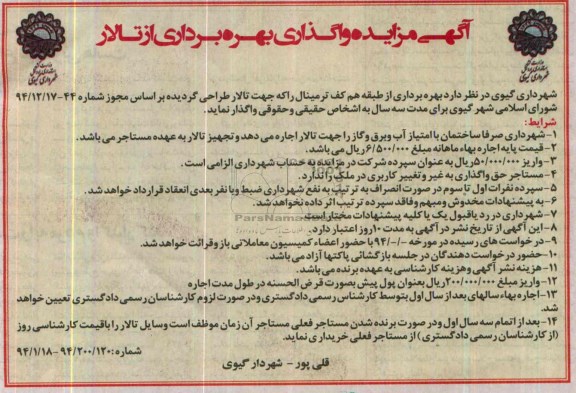 آگهی مزایده واگذاری بهره برداری از تالار
شهرداری گیوی در نظر دارد بهره برداری از طبقه هم کف ترمینال را که جهت تالار طراحی گردیده بر اساس مجوز شماره ۴۴-۹۴/۱۲/۱۷
شورای اسلامی شهر گیوی برای مدت سه سال به اشخاص حقیقی و حقوقی واگذار نماید.
شرایط:
۱-شهرداری صرفا ساختمان با امتیاز آب و برق و گاز را جهت تالار اجاره می دهد و تجهیز تالار به عهده مستاجر می باشد.
۲-قیمت پایه اجاره بهاء ماهانه مبلغ ۶/۵۰۰/۰۰۰ ریال می باشد.
۳-واریز ۵۰/۰۰۰/۰۰۰ ریال به عنوان سپرده شرکت در مزایده به حساب شهرداری الزامی است.
۴-مستاجر حق واگذاری به غیر و تغییر کاربری در ملک را ندارد.
۵-سپرده نفرات اول تا سوم در صورت انصراف به ترتیب به نفع شهرداری ضبط و با نفر بعدی انعقاد قرارداد خواهد شد.
۶-به پیشنهادات مخدوش و مبهم و فاقد سپرده ترتیب اثر داده نخواهد شد.
۷-شهرداری در رد یا قبول یک یا کلیه پیشنهادات مختار است.
۸-این آگهی از تاریخ نشر در آگهی به مدت ۱۰ روز اعتبار دارد.
۹-درخواست های رسیده در مورخه -/-/۹۴ با حضور اعضاء کمیسیون معاملاتی باز و قرائت خواهد شد.
۱۰-حضور درخواست دهندگان در جلسه بازگشائی پاکتها آزاد می باشد.
۱۱-هزینه نشر آگهی و هزینه کارشناسی به عهده برنده می باشد.
۱۲-واریز مبلغ ۲۰۰/۰۰۰/۰۰۰ ریال بعنوان پول پیش بصورت قرض الحسنه در طول مدت اجاره
۱۳-اجاره بهاء سالهای بعد از سال اول بتوسط کارشناس رسمی دادگستری و در صورت لزوم کارشناسان رسمی دادگستری تعیین خواهد
شد.
۱۴-بعد از اتمام سه سال اول و در صورت برنده شدن مستاجر فعلی مستاجر آن زمان موظف است وسایل تالار را باقیمت کارشناسی روز
(از کارشناسان رسمی دادگستری) از مستاجر فعلی خریداری نماید.
شماره: ۹۴/۲۰۰/۱۲۰-۹۴/۱/۱۸
قلی پور - شهردار گیوی